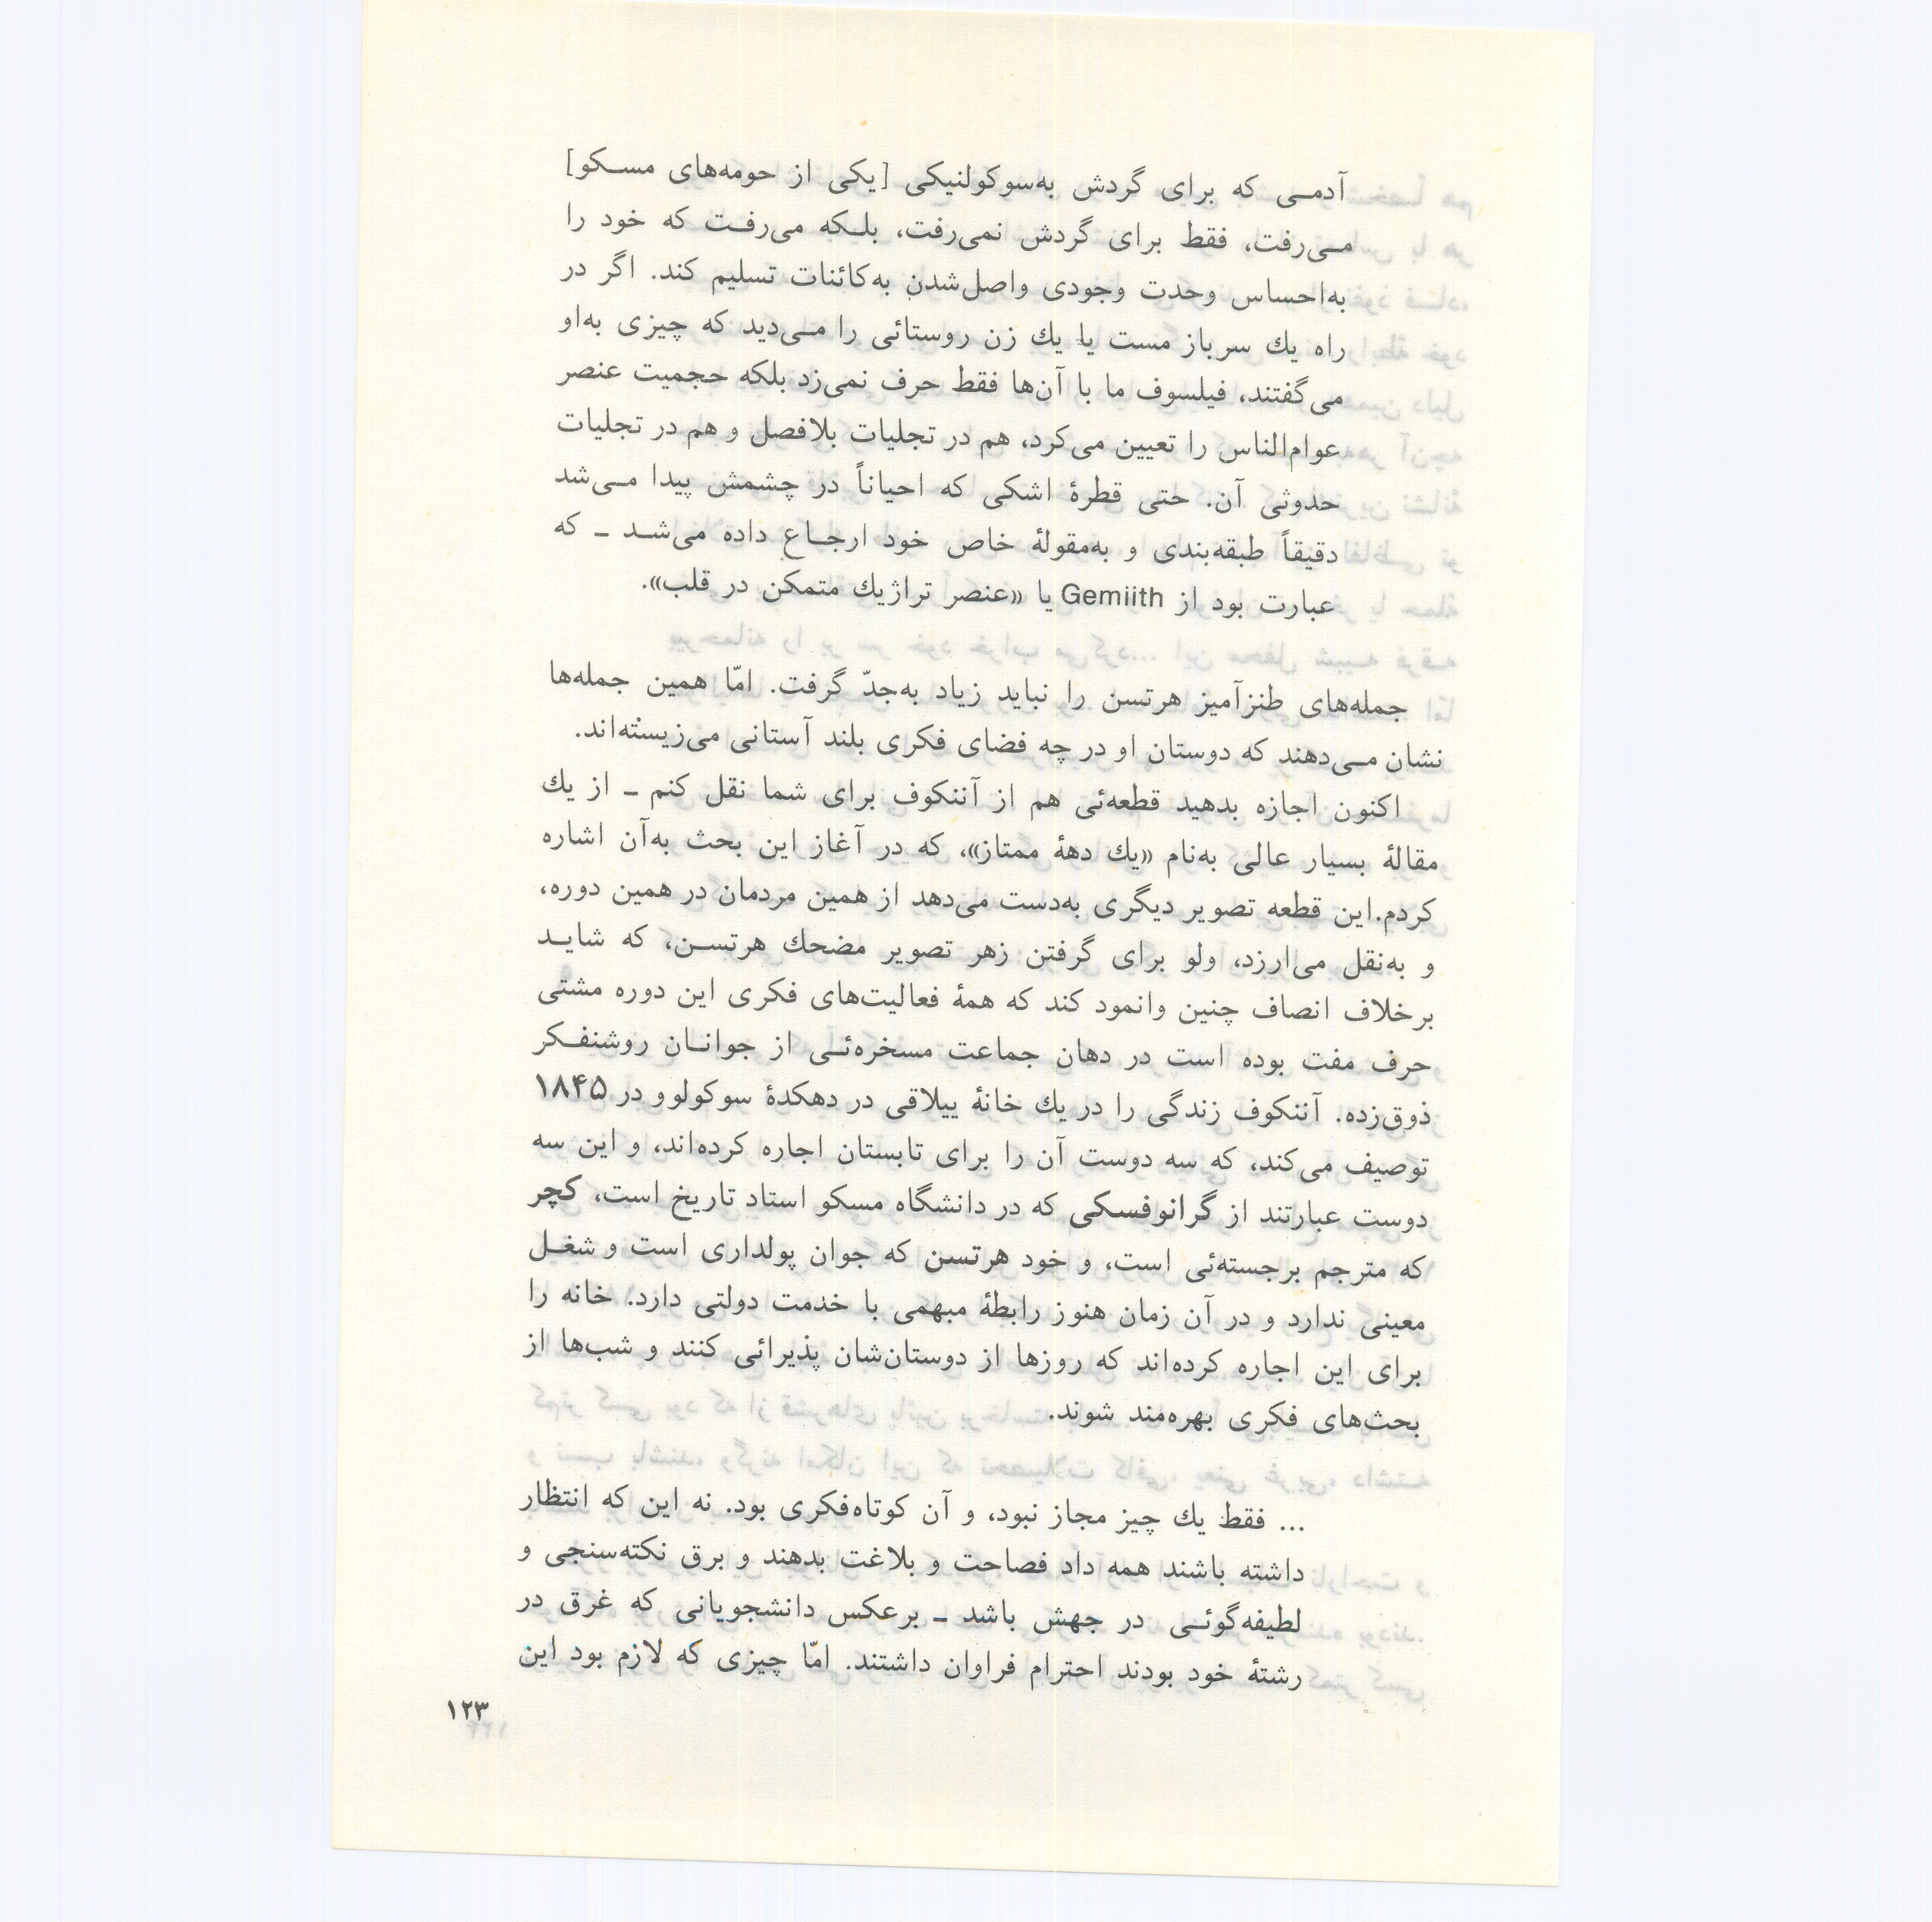 آدمـی که برای گردش به‌سوکولنیکی [یکی از حومه‌های مسـکو]
مـی‌رفت، فقط برای گردش نمی‌رفت، بلـکه می‌رفـت که خود را
به‌احساس وحدت وجودی واصل‌شدنِ به‌کائنات تسلیم کند. اگر در
راه یك سرباز مست یا یك زن روستائی را مـی‌دید که چیزی به‌او
می‌گفتند، فیلسوف ما با آن‌ها فقط حرف نمی‌زد بلکه حجمیت عنصر
عوام‌الناس را تعیین می‌کرد، هم در تجلیات بلافصل و هم در تجلیات
حدوثی آن. حتی قطرهٔ اشکی که احیاناً در چشمش پیدا مـی‌شد
دقیقاً طبقه‌بندی و به‌مقولهٔ خاص خود ارجـاع داده می‌شـد ـ که
عبارت بود از Gemiith یا «عنصر تراژیك متمکن در قلب».
جمله‌های طنزآمیز هرتسن را نباید زیاد به‌جدّ گرفت. امّا همین جمله‌ها
نشان مـی‌دهند که دوستان او در چه فضای فکری بلند آستانی می‌زیسته‌اند.
اکنون اجازه بدهید قطعه‌ئی هم از آننکوف برای شما نقل کنم ـ از یك
مقالهٔ بسیار عالی به‌نام «یك دههٔ ممتاز»، که در آغاز این بحث به‌آن اشاره
کردم.این قطعه تصویر دیگری به‌دست می‌دهد از همین مردمان در همین دوره،
و به‌نقل می‌ارزد، ولو برای گرفتن زهر تصویر مضحك هرتسـن، که شایـد
برخلاف انصاف چنین وانمود کند که همهٔ فعالیت‌های فکری این دوره مشتی
حرف مفت بوده است در دهان جماعت مسخره‌ئـی از جوانـان روشنفـکر
ذوق‌زده. آننکوف زندگی را در یك خانهٔ ییلاقی در دهکدهٔ سوکولوو در ۱۸۴۵
توصیف می‌کند، که سه دوست آن را برای تابستان اجاره کرده‌اند، و این سه
دوست عبارتند از گرانوفسکی که در دانشگاه مسکو استاد تاریخ است، کچر
که مترجم برجسته‌ئی است، و خود هرتسن که جوان پولداری است و شغـل
معینی ندارد و در آن زمان هنوز رابطهٔ مبهمی با خدمت دولتی دارد. خانه را
برای این اجاره کرده‌اند که روزها از دوستان‌شان پذیرائی کنند و شب‌ها از
بحث‌های فکری بهره‌مند شوند.
... فقط یك چیز مجاز نبود، و آن کوتاه‌فکری بود. نه این که انتظار
داشته باشند همه داد فصاحت و بلاغت بدهند و برق نکته‌سنجی و
لطیفه‌گوئـی در جهش باشد ـ برعکس دانشجویانی که غرق در
رشتهٔ خود بودند احترام فراوان داشتند. امّا چیزی که لازم بود این
۱۲۳